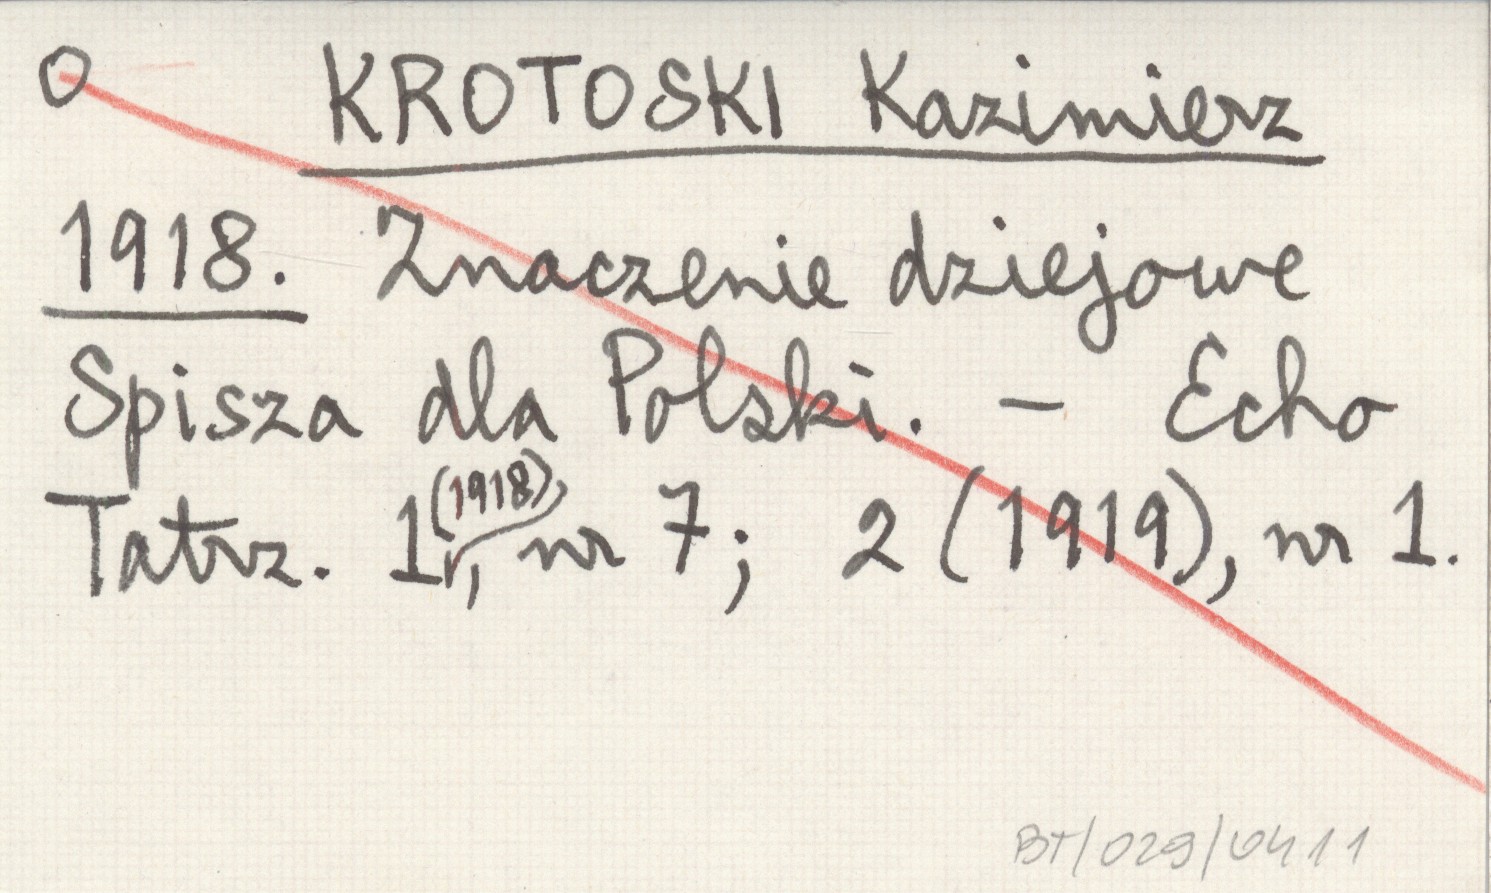 O KROTOSKI Kazimierz
1918. Znaczenie dziejowe
Spisza dla Polski. – Echo
Tatrz. 1 (1918), nr 7; 2 (1919), nr 1.
BT/029/0411